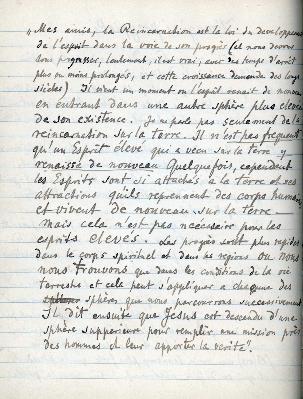 "Mes amis, la Reincarnaction est la loi du developpement
de l'esprit dans la voie de son progrès (et nous devons
tous progresser, lentement, il est vrai, avec des temps d'arrêt
plus ou moins prolongés, et cette croissance demande des longs
siècles) Il vient un moment ou l'esprit renait de nouveau
en entrant dans une autre sphère plus elevé
de son existence. Je ne parle pas seulement de la
reincarnation sur la terre. Il n'est pas frequent
qu'un Esprit elevé qui a vecu sur la terre y
renaisse de nouveau Quelquefois, cependant
les Esprits sont si attachés à la terre et ses
attractions qu'ils reprennent des corps humains
et vivent de nouveau sur la terre —
mais cela n'est pas nécessaire pour les
esprits elevés. Les progrès sont plus rapides
dans le corps spirituel et dans les regions ou nous
nous trouvons que dans les conditions de la vie
terrestre et cela peut s'appliquer a chaque des
sphères que nous parcourrons successivement
Il dit ensuite que Jesus est descendu d'une
sphère supperieure pour remplir une mission près
des hommes et leur apporter la verite".